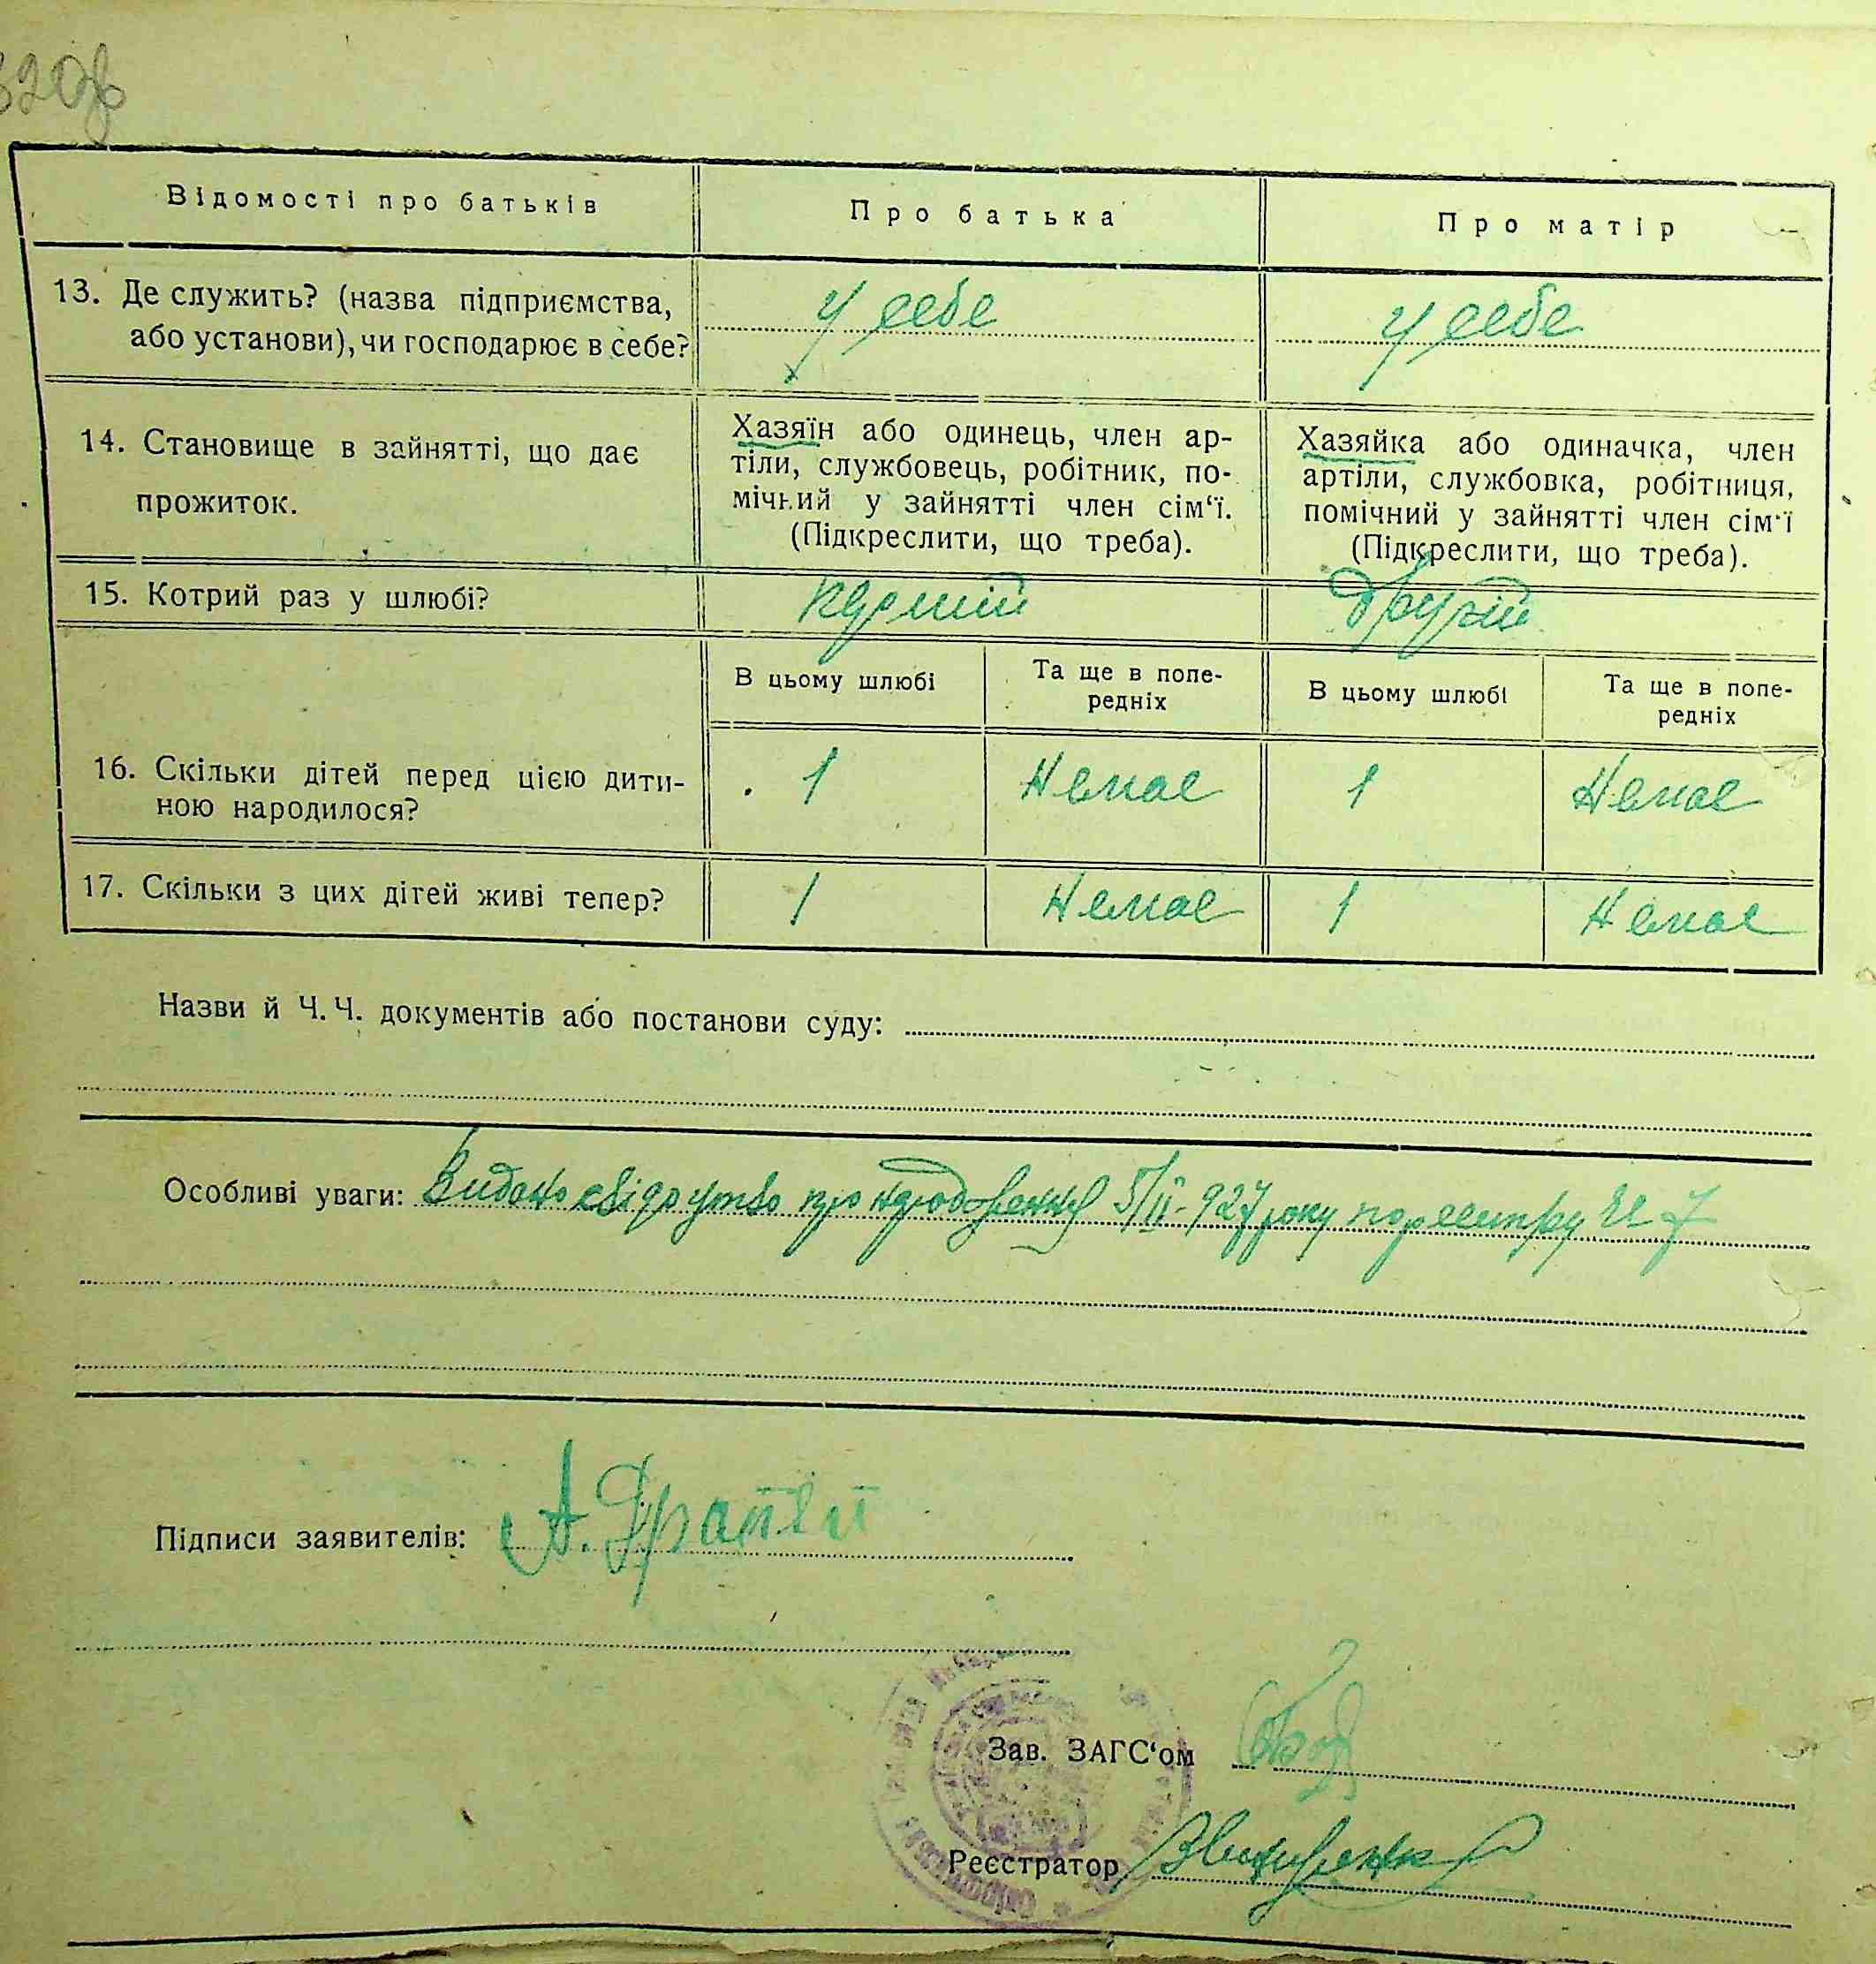 320
Відомості про батьків
Про батька
Про матір
13. Де служить? (назва підприємства,
або установи), чи господарює в себе?
у себе
у себе
14. Становище в зайнятті, що дає
прожиток.
Хазяїн або одинець, член ар-
тіли, службовець, робітник, по-
мічний у зайнятті член сім‘ї.
(Підкреслити, що треба).
Хазяйка або одиначка, член
артіли, службовка, робітниця,
помічний у зайнятті член сім‘ї
(Підкреслити, що треба).
15. Котрий раз у шлюбі?
перший
другий
В цьому шлюбі
Та ще в попе-
редніх
В цьому шлюбі
Та ще в попе-
редніх
16. Скільки дітей перед цією дити-
ною народилося?
1
Немає
1
Немає
17. Скільки з цих дітей живі тепер?
1
Немає
1
Немає
Назви й Ч. Ч. документів або постанови суду:
Особливі уваги: Видано свідоцтво про народження 5/II-927 року по реєстру № 7
Підписи заявителів: А.
Зав. ЗАГС‘ом
Реєстратор